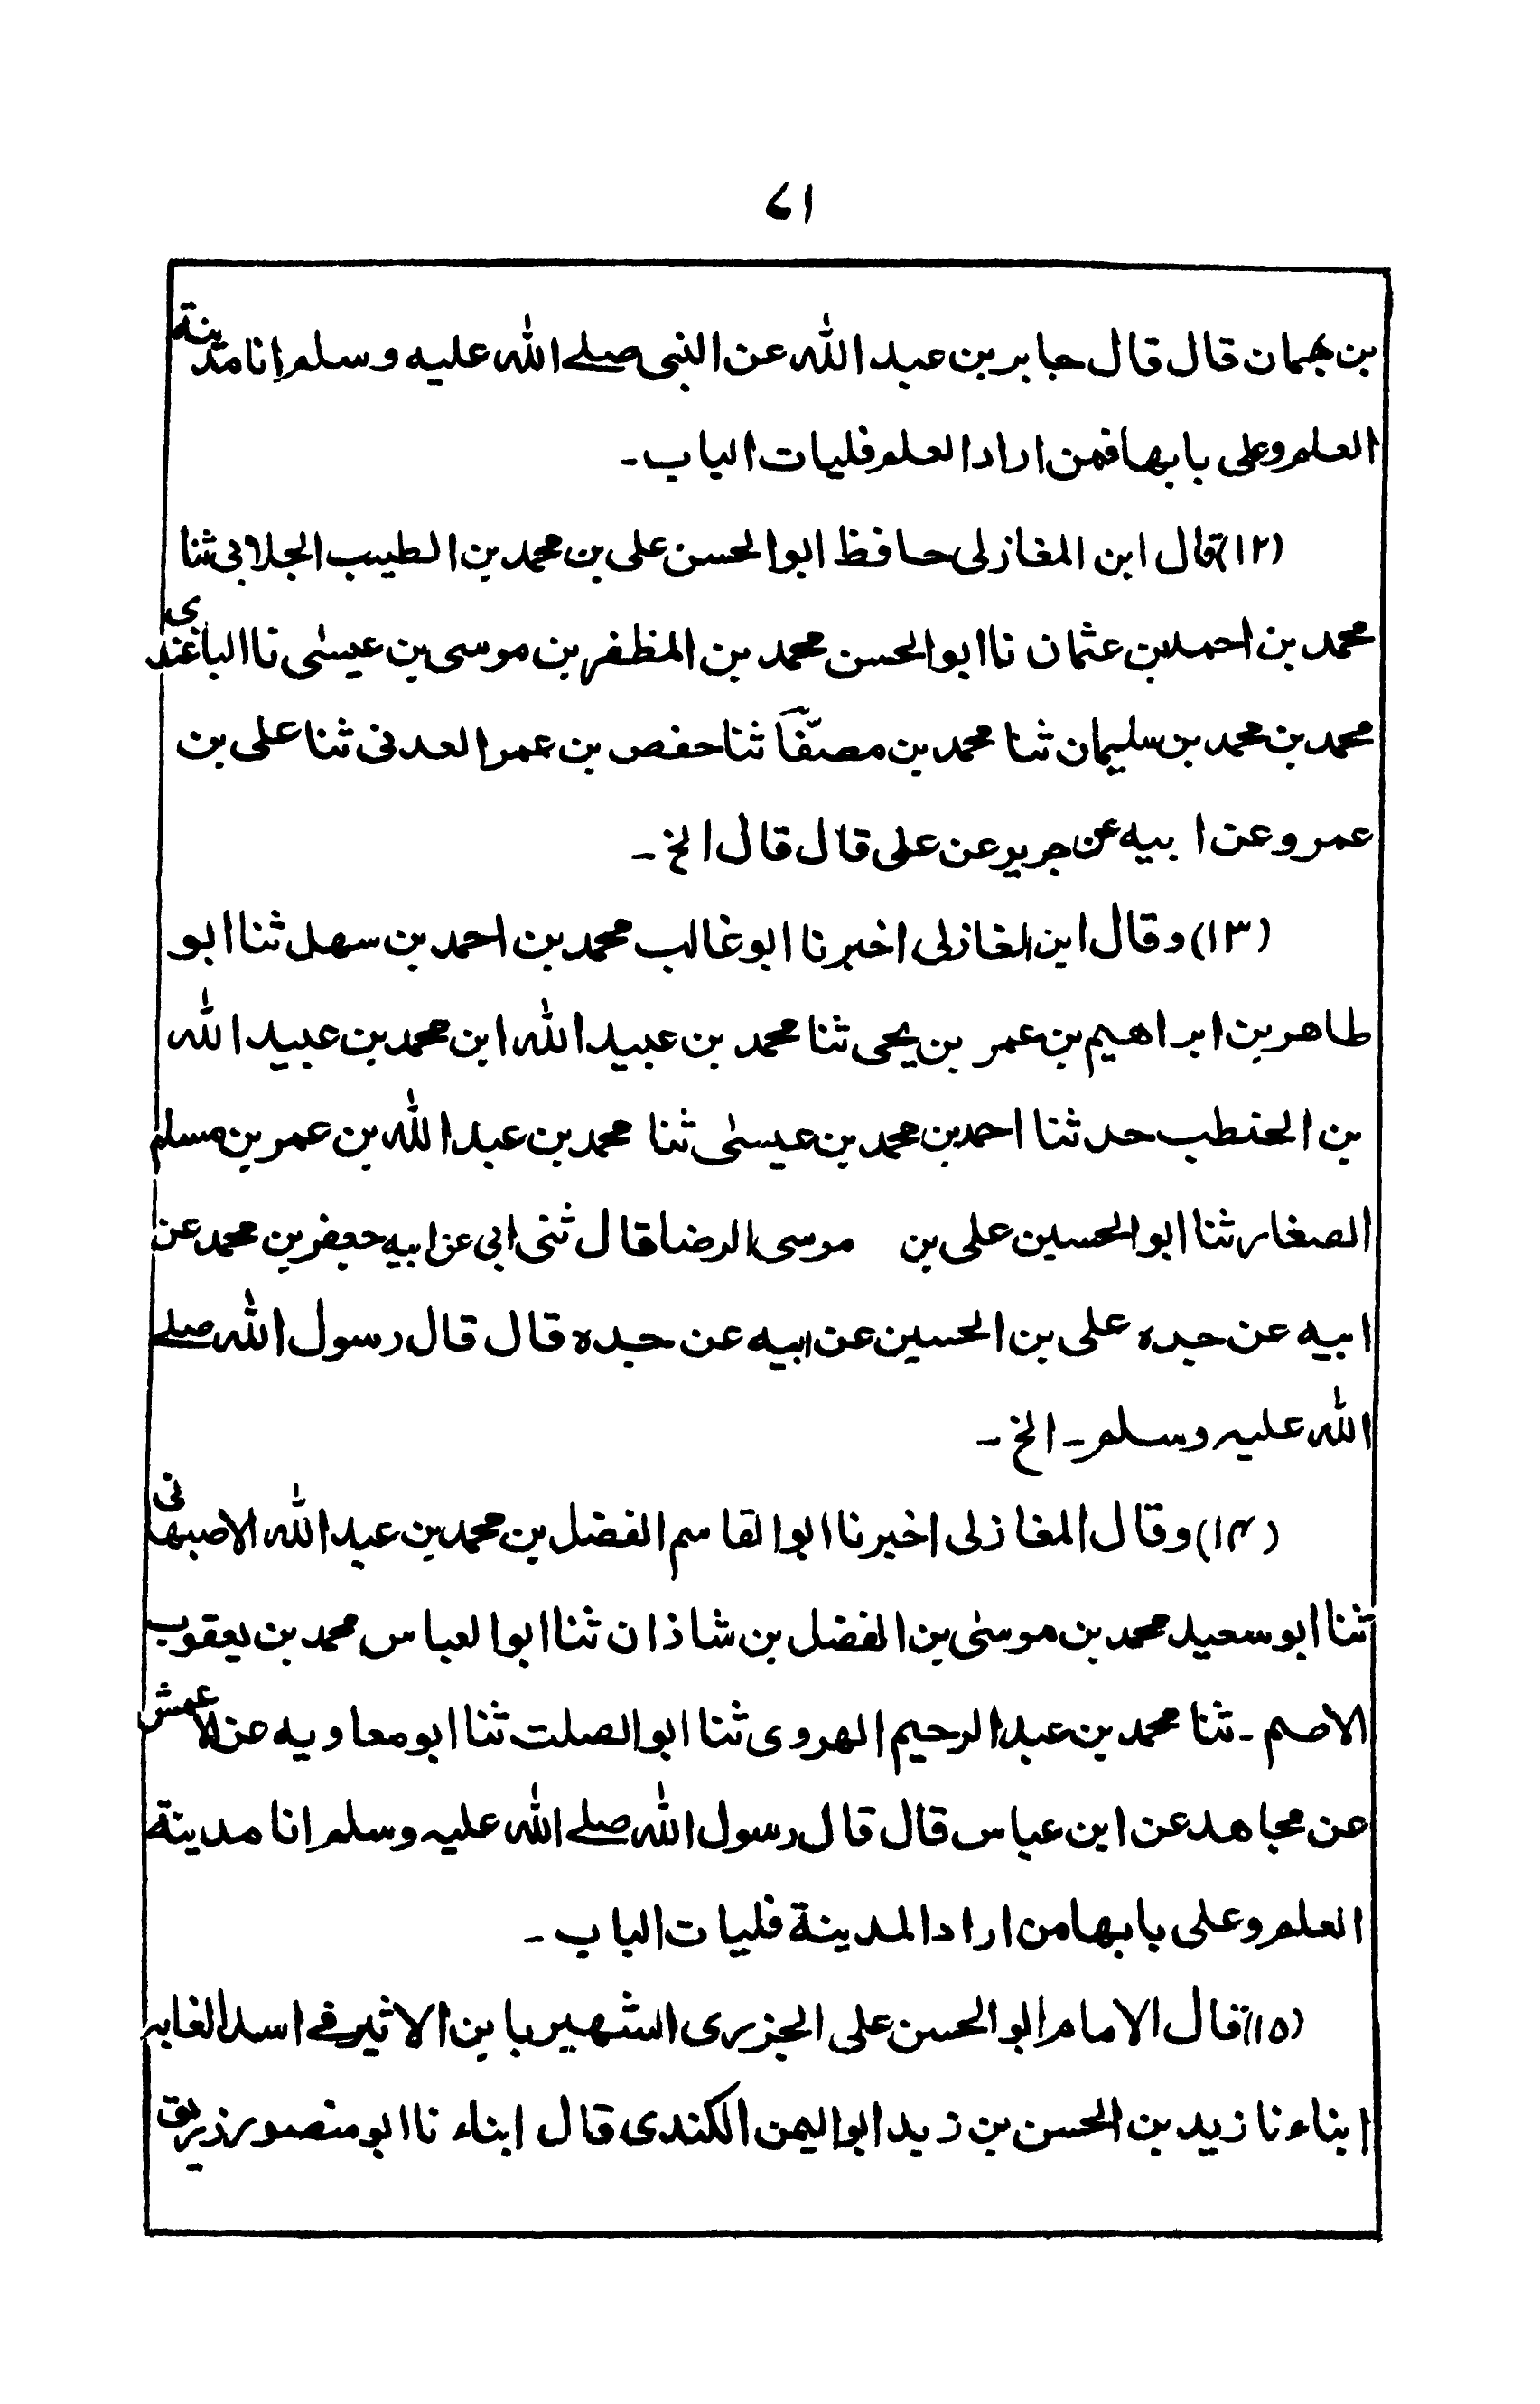 ۷۱
بن بهمان قال قال جابر بن عبد الله عن النبی صلے الله علیه وسلم انا مدینة
العلم وعلی بابها فمن اراد العلم فلیات الباب۔
(۱۲) قال ابن المغازلی حافظ ابو الحسن علی بن محمد بن الطیب الجلابی ثنا
محمد بن احمد بن عثمان نا ابو الحسن محمد بن المظفر بن موسی بن عیسٰی نا الباغندی
محمد بن محمد بن سلیمان ثنا محمد بن مصفّٓا ثنا حفص بن عمر العدنی ثنا علی بن
عمرو عن ابیه عن جریر عن علی قال قال الخ۔
(۱۳) وقال ابن المغازلی اخبرنا ابو غالب محمد بن احمد بن سهل ثنا ابو
طاهر بن ابراهیم بن عمر بن یحی ثنا محمد بن عبید الله ابن محمد بن عبید الله
بن الحنطب حدثنا احمد بن محمد بن عیسٰی ثنا محمد بن عبد الله بن عمر بن مسلم
الصغار ثنا ابو الحسین علی بن موسی الرضا قال ثنی ابی عن ابیه جعفر بن محمد عن
ابیه عن جده علی بن الحسین عن ابیه عن جده قال قال رسول الله صلے
الله علیه وسلم۔ الخ۔
(۱۴) وقال المغازلی اخبرنا ابو القاسم الفضل بن محمد بن عبد الله الاصبهانی
ثنا ابو سعید محمد بن موسٰی بن الفضل بن شاذان ثنا ابو العباس محمد بن یعقوب
الاصم۔ ثنا محمد بن عبد الرحیم الهروی ثنا ابو الصلت ثنا ابو معاویه عن الاعمش
عن مجاهد عن ابن عباس قال قال رسول الله صلے الله علیه وسلم انا مدینة
العلم وعلی بابها من اراد المدینة فلیات الباب۔
(۱۵) قال الامام ابو الحسن علی الجزری الشهیر بابن الاثیر فے اسد الغابه
ابناء نا زید بن الحسن بن زید ابو الیمن الکندی قال ابناء نا ابو منصور زریق